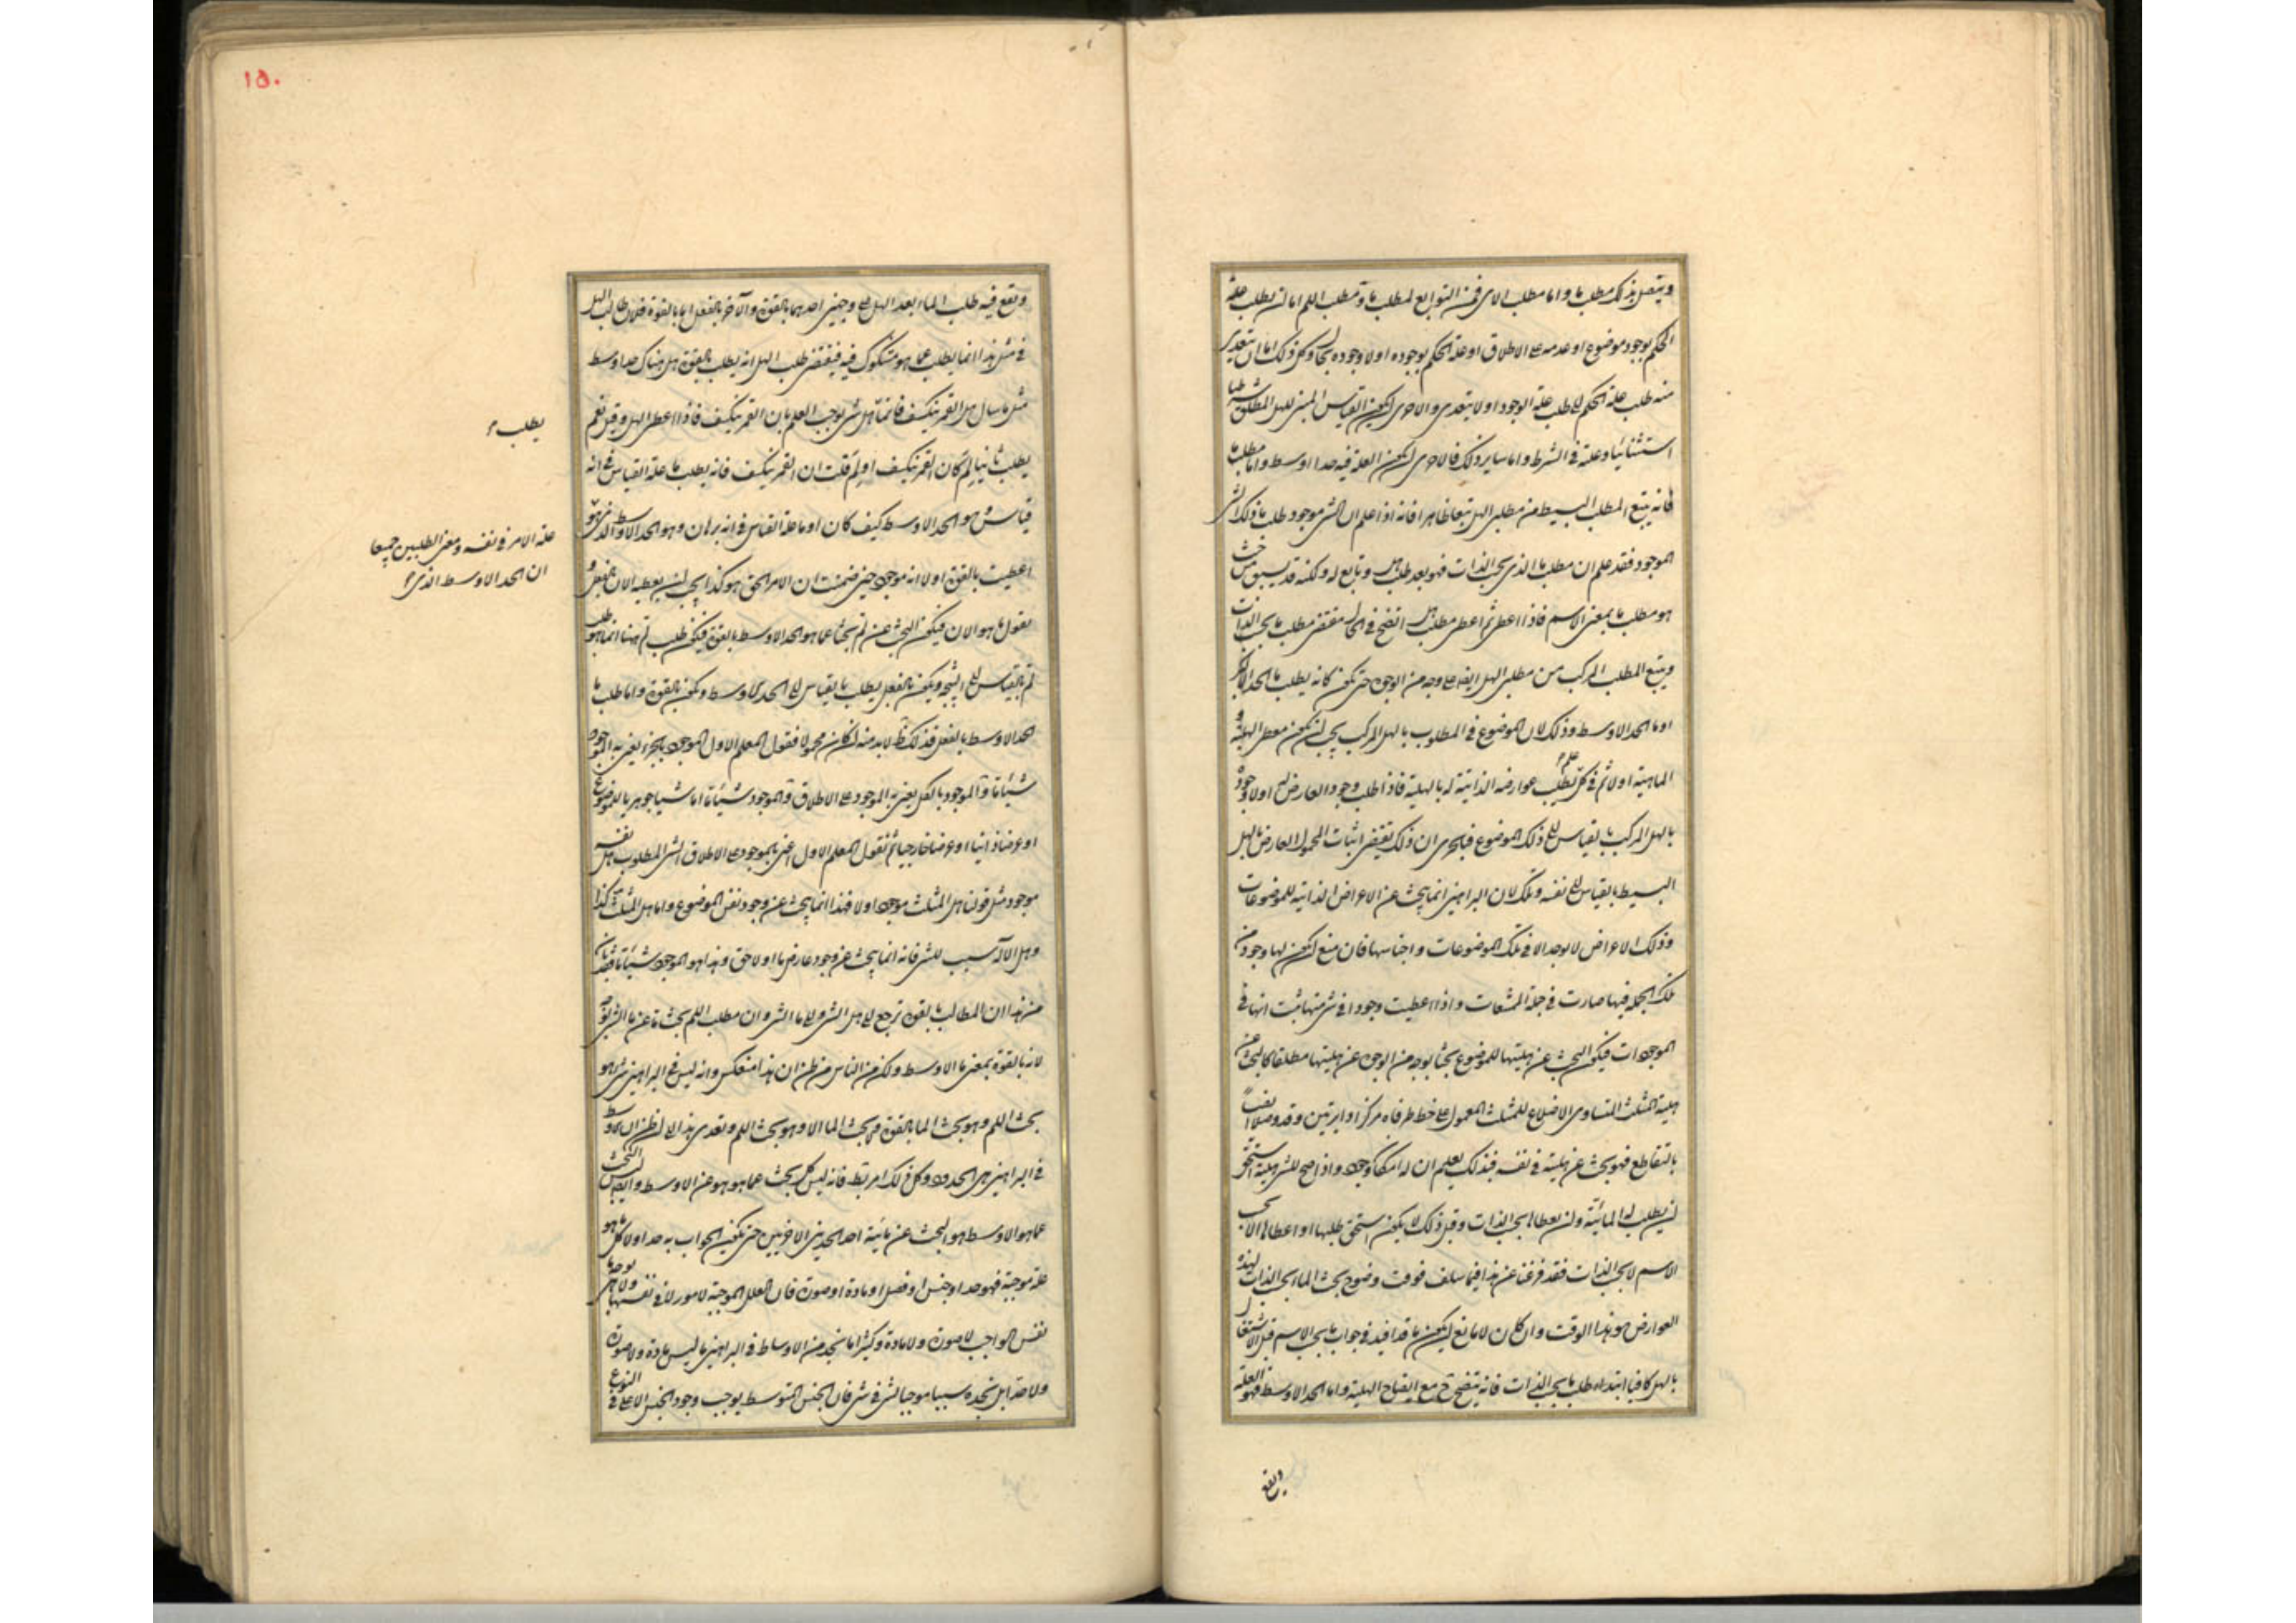 ويتصل بذلك مطلب ما واما مطلب الاى فمن التوابع لمطلب ما ومطلب اللم اما ان يطلب علة
الحكم بوجود موضوع او عدمه على الاطلاق او علة الحكم بوجوده او لا وجوده بحال وكل ذلك اما ان يتعدى
منه طلب علة الحكم الى طلب علة الوجود او لا يتعدى والاحرى ان يكون القياس المبين للهل المطلق شرطيا
استثنائيا وعلته فى الشرط واما ساير ذلك فالاحرى ان يكون العلة فيه حدا اوسط واما مطلب ما
فانه يتبع المطلب البسيط من مطلبى الهل تبعا ظاهرا فانه اذا علم ان الشى موجود طلب ما ذلك الشى
الموجود فقد علم ان مطلب ما الذى بحسب الذات فهو بعد طلب هل وتابع له ولكنه قد يسبق من حيث
هو مطلب ما بمعنى الاسم فاذا اعطى ثم اعطى مطلب هل اتضح فى الحال مقتضى مطلب ما بحسب الذات
ويتبع المطلب المركب من مطلبى الهل ايضا على وجه من الوجوه حتى يكون كانه يطلب ما الحد الاكبر
او ما الحد الاوسط وذلك لان الموضوع فى المطلوب بالهل المركب يجب ان يكون معطى الهلية و
الماهية اولا ثم فى كل علم يطلب عوارضه الذاتية له بالهلية فاذا طلب وجود العارض او لا وجوده
بالهل المركب بالقياس الى ذلك الموضوع فبالحرى ان ذلك يقتضى اثبات المحمول العارض بالهل
البسيط بالقياس الى نفسه وذلك لان البراهين انما يبحث عن الاعراض الذاتية للموضوعات
وذلك الاعراض لا يوجد الا فى تلك الموضوعات واجناسها فان منع ان يكون لها وجود من
تلك الجملة فيها صارت فى جملة الممتنعات واذا اعطيت وجودا فى شى منها ثبت انها فى
الموجودات فيكون البحث عن هليتها للموضوع بحثا بوجه من الوجوه عن هليتها مطلقا كالبحث عن
هلية المثلث المتساوى الاضلاع للمثلث المعمول على خط طرفاه مركزا دايرتين وقد وصلا
بالتقاطع فهو بحث عن هليته فى نفسه فبذلك يعلم ان له امكان وجود واذا صح للشى هلية استحق
ان يطلب له المائية وان يعطاها بحسب الذات وقبل ذلك لا يكون استحق طلبها او اعطاها الا بحسب
الاسم لا بحسب الذات فقد فرغنا عن هذا فيما سلف فوقت وضوح بحث الما بحسب الذات لهذه
العوارض هو هذا الوقت وان كان لا مانع ان يكون ما قد افيد فى جواب ما بحسب الاسم قبل الاشتغال
بالهل كافيا ابتداء طلب ما بحسب الذات فانه يتضح ح مع ايضاح الهلية واما الحد الاوسط فهو العلة
ويقع
١٥٠
ويقع فيه طلب الما بعد الهل على وجهين احدهما بالقوة والآخر بالفعل اما بالقوة فلان طالب الهل
فى مثل هذا انما يطلب عما هو مشكوك فيه فيقتضى طلب الهل انه يطلب بالقوة هل هناك حد اوسط
مثل ما سال هل القمر ينكسف فانما هل شى يوجب العلم بان القمر ينكسف فاذا اعطى الهل وقيل نعم
يطلب ثانيا لم كان القمر ينكسف او لم قلت ان القمر ينكسف فانه يطلب ما علة القياس فى انه
قياس وهو الحد الاوسط كيف كان او ما علة القياس فى انه برهان وهو الحد الاوسط الذى هو
يطلب
علة الامر فى نفسه ومعنى الطلبين جميعا
ان الحد الاوسط الذى
اعطيت بالقوة اولا انه موجود حين ضمنت ان الامر الحق هو كذا يجب ان يعطيه الان بالفعل و
يقول ما هو الان فيكون البحث عن لم بحثا عما هو الحد الاوسط بالقوة فيكون طلب لم ههنا انما هو طلب
لم بالقياس الى النتيجة ويكون بالفعل يطلب ما بالقياس الى الحد الاوسط ويكون بالقوة واما طلب ما
الحد الاوسط بالفعل فذلك لابد منه ان كان مجهولا فقول المعلم الاول الموجود بالجزء يعنى به الموجود
شيئا ما والموجود بالكل يعنى به الموجود على الاطلاق والموجود شيئا ما اما شيئا جوهريا للموضوع
او عرضا ذاتيا او عرضا خارجيا ثم نقول المعلم الاول اعنى بالموجود على الاطلاق الشى المطلوب هل نفسه
موجود مثل قولنا هل المثلث موجود او لا فهذا انما يبحث عن وجود نفس الموضوع واما هل المثلث كذا
وهل الاله سبب للشر فانه انما يبحث عن وجود عارض ما او لاحق وهذا هو الموجود شيئا ما فقد بان
من هذا ان المطالب بالقوة ترجع الى هل الشى والى ما الشى وان مطلب اللم بحث ما عن ما الشى بالقوة
لانه بالقوة بمعنى ما الاوسط ولكن من الناس من ظن ان هذا منعكس وانه ليس فى البراهين شى هو
بحث اللم وهو بحث الما بالقوة فى بحث الما الا وهو بحث اللم وتعدى هذا الى ان ظن ان الاوسط
فى البراهين هى الحدود وكل ذلك امر باطل فانه ليس كل بحث عما هو هو عن الاوسط وايضا ليس البحث
عما هو الاوسط هو البحث عن مائية احد الحدين الاخرين حتى يكون الجواب به حدا ولا كل ما هو
علة موجبة فهو حد او جنس او فصل او مادة او صورة فان العلل الموجبة لامور لا فى نفسها ولا هى
نفس الواجب لا صورة ولا مادة وكثيرا ما نجد من الاوساط فى البراهين ما ليس مادة ولا صورة
ولا حدا بل نجده سببا موجبا لشى فى شى فان الجنس المتوسط يوجب وجود الجنس الاعلى فى النوع